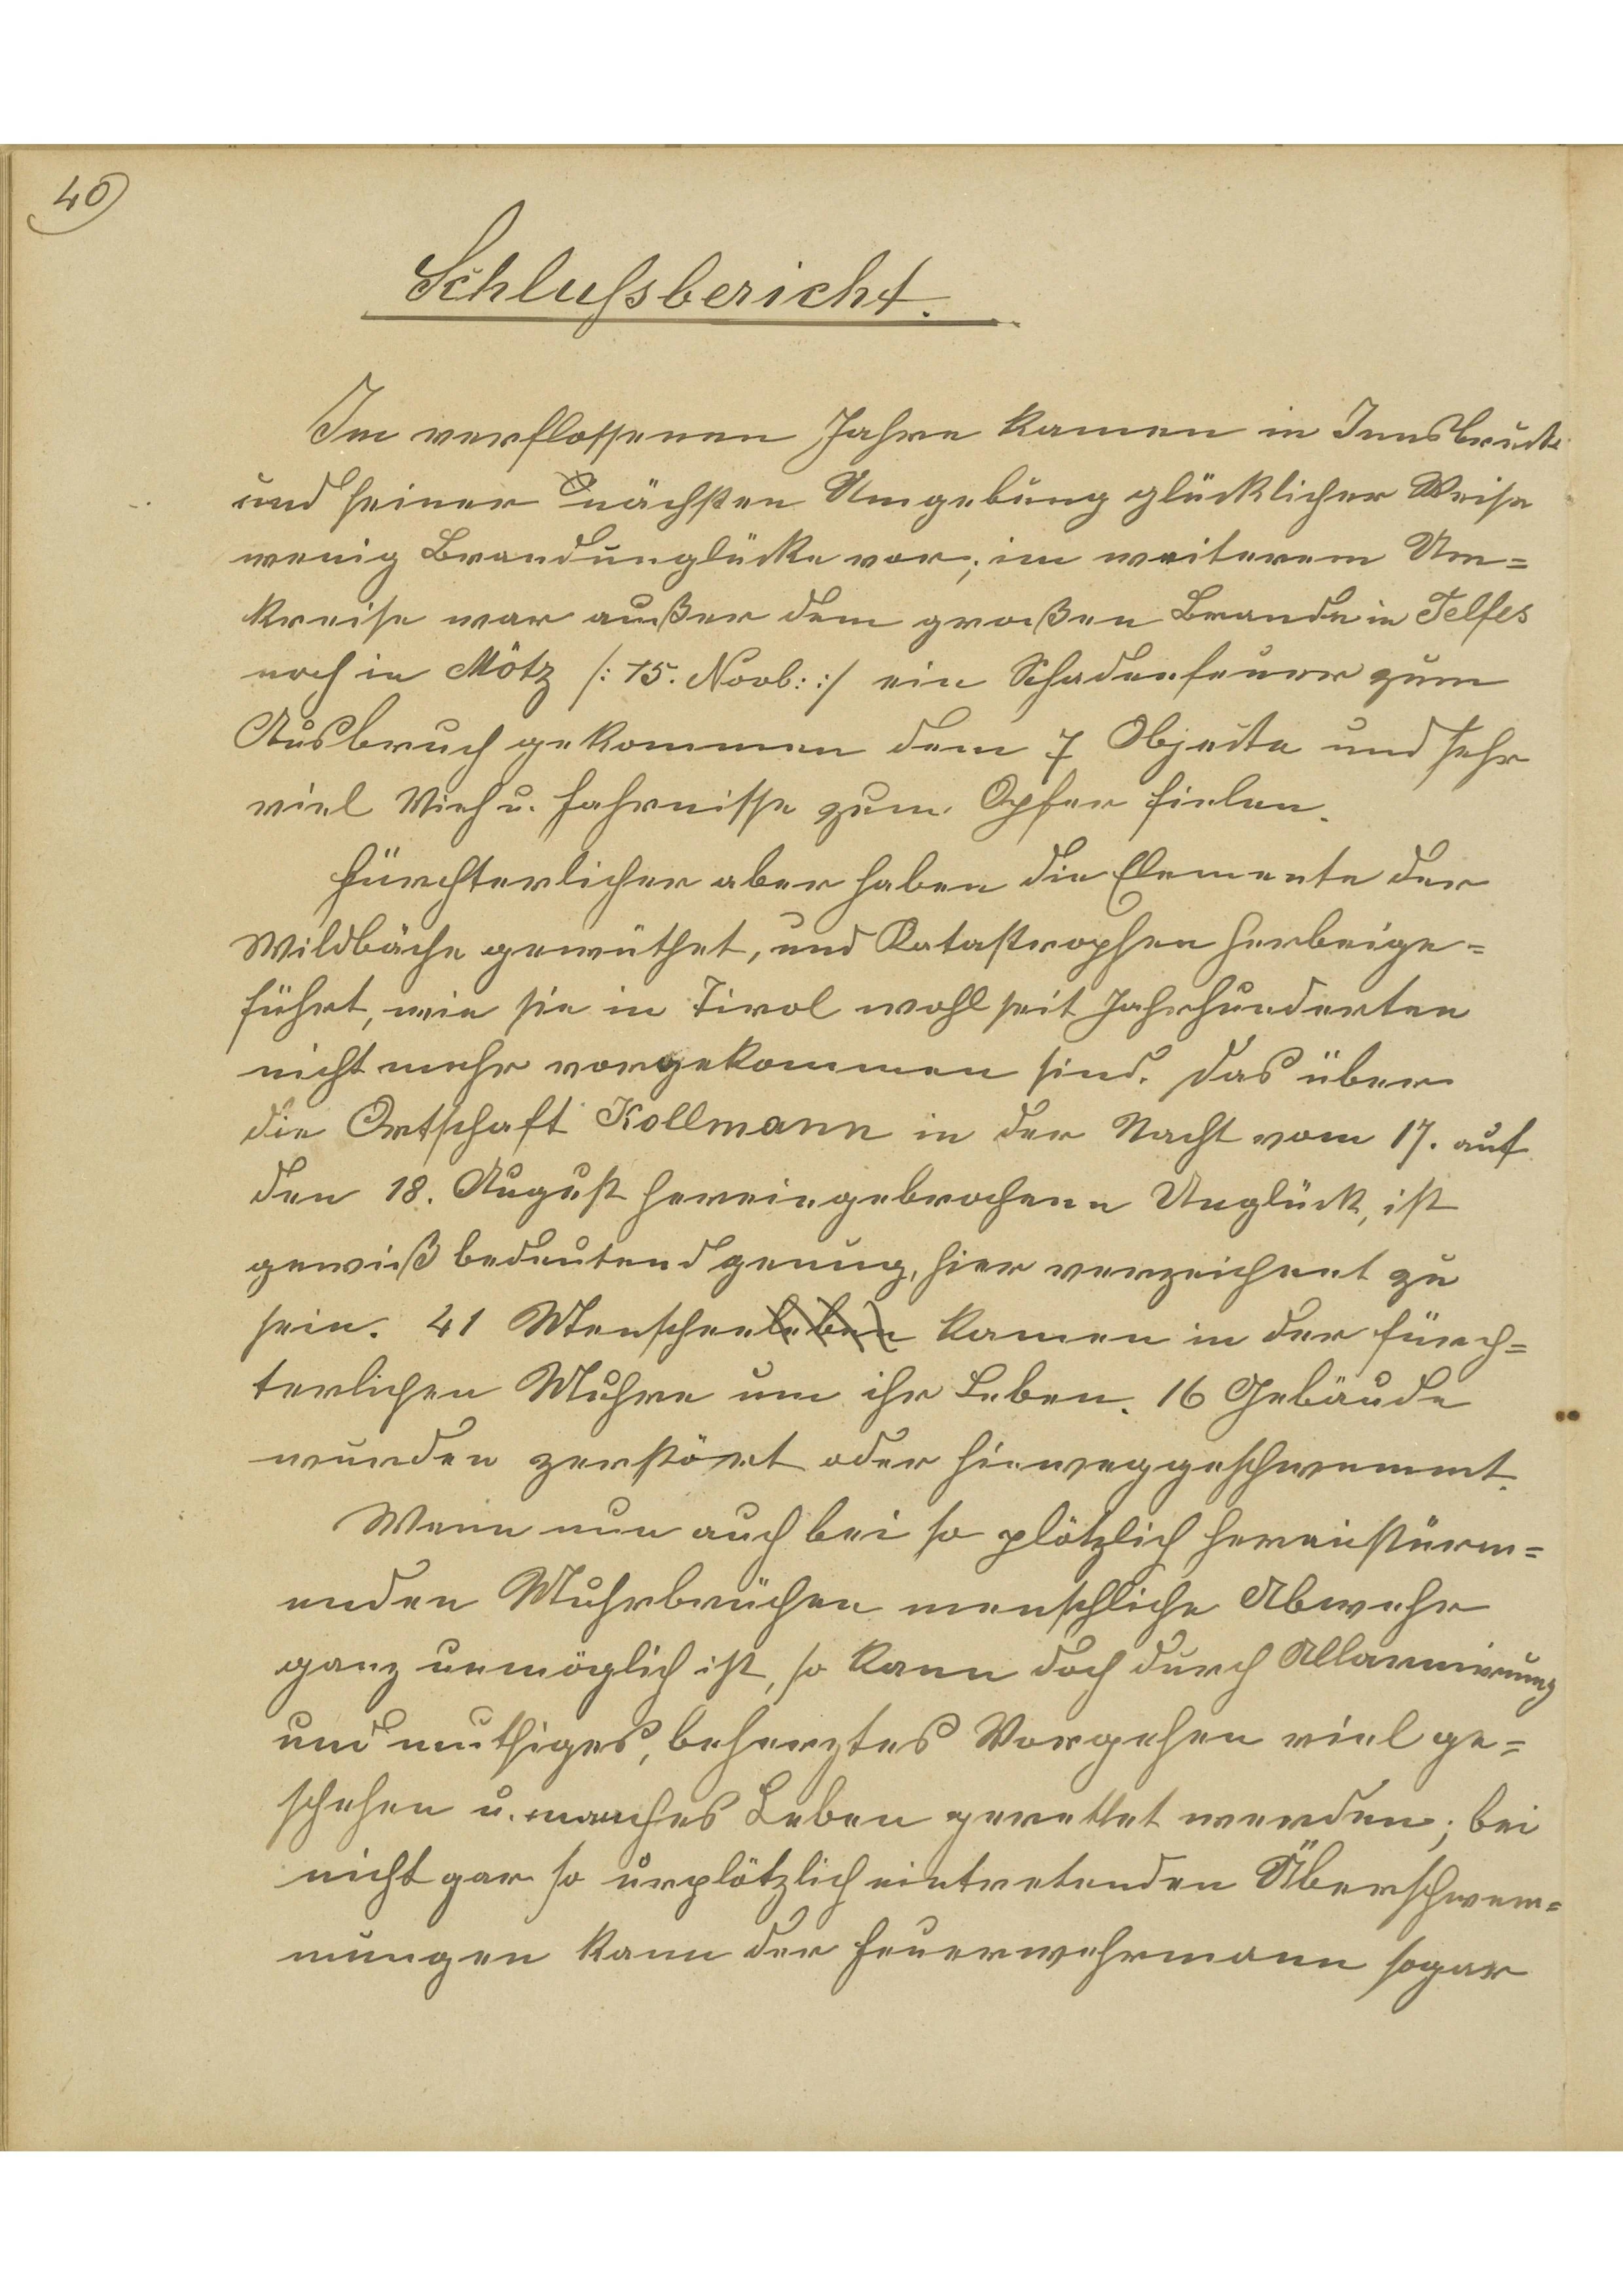 40
Schlußbericht.
Im verflossenen Jahre kamen in Innsbruck
und seiner nächsten Umgebung glücklicher Weise
wenig Brandunglücke vor; im weiterem Um=
kreise war außer dem großen Brande in Telfes
noch in Mötz /: 15. Novb: :/ ein Schadenfeuer zum
Ausbruch gekommen dem 7 Objecte und sehr
viel Vieh u. Fahrnisse zum Opfer fielen.
Fürchterlicher aber haben die Elemente der
Wildbäche gewüthet, und Katastrophen herbeige=
führt, wie sie in Tirol wohl seit Jahrhunderten
nicht mehr vorgekommen sind. Das über
die Ortschaft Kollmann in der Nacht vom 17. auf
den 18. August hereingebrochene Unglück, ist
gewiß bedeutend genug, hier verzeichnet zu
sein. 41 Menschenleben kamen in der fürch=
terlichen Muhre um ihr Leben. 16 Gebäude
wurden zerstört oder hinweggeschwemmt.
Wenn nun auch bei so plötzlich hereinstürm=
enden Muhrbrüchen menschliche Abwehr
ganz unmöglich ist, so kann doch durch Allarmirung
und muthiges, beherztes Vorgehen viel ge=
schehen u. manches Leben gerettet werden; bei
nicht gar so urplötzlich eintretenden Überschwem=
mungen kann der Feuerwehrmann sogar